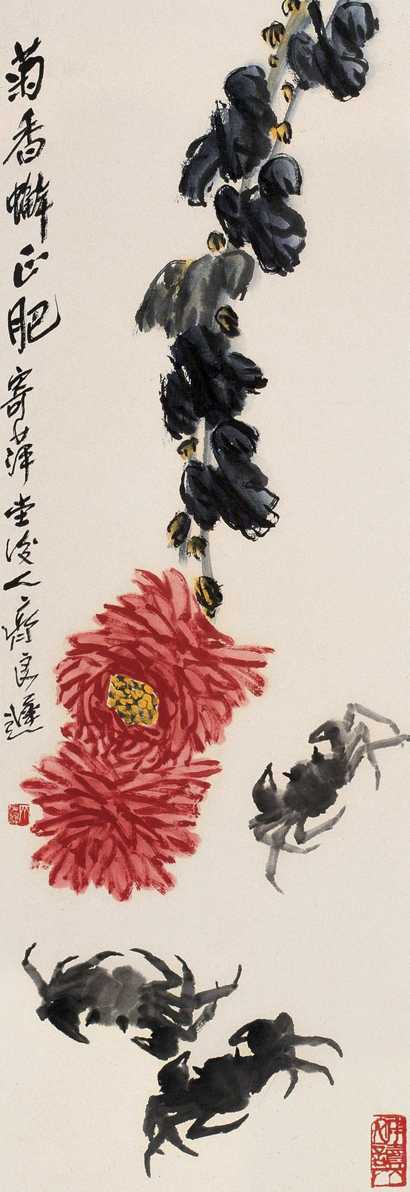 菊香蠏正肥寄萍堂後人齊良遲